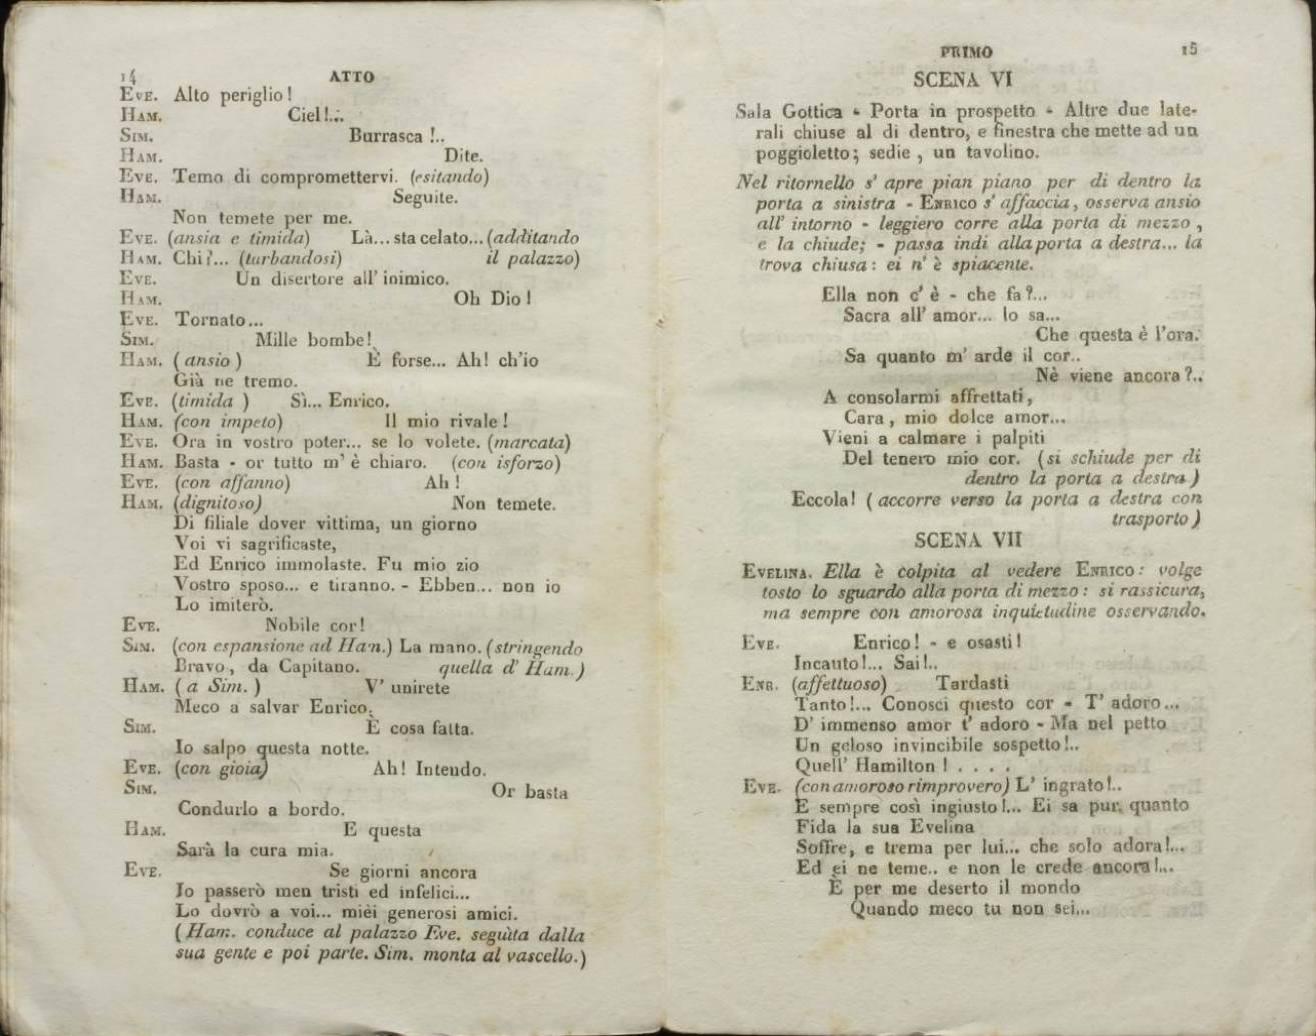 14 ATTO
EVE. Alto periglio!
HAM. Ciel!...
SIM. Burrasca!..
HAM. Dite.
EVE. Temo di compromettervi. (esitando)
HAM. Seguite.
Non temete per me.
EVE. (ansia e timida) Là... sta celato... (additando
HAM. Chi?... (turbandosi) il palazzo)
EVE. Un disertore all' inimico.
HAM. Oh Dio!
EVE. Tornato...
SIM. Mille bombe!
HAM. (ansio) È forse... Ah! ch'io
Già ne tremo.
EVE. (timida) Sì... Enrico.
HAM. (con impeto) Il mio rivale!
EVE. Ora in vostro poter... se lo volete. (marcata)
HAM. Basta - or tutto m' è chiaro. (con isforzo)
EVE. (con affanno) Ah!
HAM. (dignitoso) Non temete.
Di filiale dover vittima, un giorno
Voi vi sagrificaste,
Ed Enrico immolaste. Fu mio zio
Vostro sposo... e tiranno. - Ebben... non io
Lo imiterò.
EVE. Nobile cor!
SIM. (con espansione ad Ham.) La mano. (stringendo
Bravo, da Capitano. quella d' Ham.)
HAM. (a Sim.) V' unirete
Meco a salvar Enrico.
SIM. È cosa fatta.
Io salpo questa notte.
EVE. (con gioia) Ah! Intendo.
SIM. Or basta
Condurlo a bordo.
HAM. E questa
Sarà la cura mia.
EVE. Se giorni ancora
Io passerò men tristi ed infelici...
Lo dovrò a voi... miei generosi amici.
(Ham. conduce al palazzo Eve. seguìta dalla
sua gente e poi parte. Sim. monta al vascello.)
PRIMO 15
SCENA VI
Sala Gottica - Porta in prospetto - Altre due late-
rali chiuse al di dentro, e finestra che mette ad un
poggioletto; sedie, un tavolino.
Nel ritornello s' apre pian piano per di dentro la
porta a sinistra - ENRICO s' affaccia, osserva ansio
all' intorno - leggiero corre alla porta di mezzo,
e la chiude; - passa indi alla porta a destra... la
trova chiusa: ei n' è spiacente.
Ella non c' è - che fa?...
Sacra all' amor... lo sa...
Che questa è l'ora.
Sa quanto m' arde il cor..
Nè viene ancora?..
A consolarmi affrettati,
Cara, mio dolce amor...
Vieni a calmare i palpiti
Del tenero mio cor. (si schiude per di
dentro la porta a destra)
Eccola! (accorre verso la porta a destra con
trasporto)
SCENA VII
EVELINA. Ella è colpita al vedere ENRICO: volge
tosto lo sguardo alla porta di mezzo: si rassicura,
ma sempre con amorosa inquietudine osservando.
EVE. Enrico! - e osasti!
Incauto!... Sai!..
ENR. (affettuoso) Tardasti
Tanto!... Conosci questo cor - T' adoro...
D' immenso amor t' adoro - Ma nel petto
Un geloso invincibile sospetto!..
Quell' Hamilton! . . . .
EVE. (con amoroso rimprovero) L' ingrato!..
E sempre così ingiusto!... Ei sa pur quanto
Fida la sua Evelina
Soffre, e trema per lui... che solo adora!...
Ed ei ne teme.. e non le crede ancora!...
È per me deserto il mondo
Quando meco tu non sei...